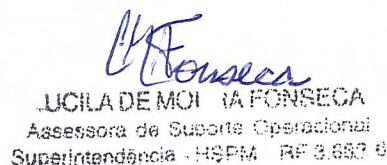 Fonseca
LUCILA DE MO FONSECA
Assessora de Suporte Operacional
Superintendência - HSPM RF 3.653